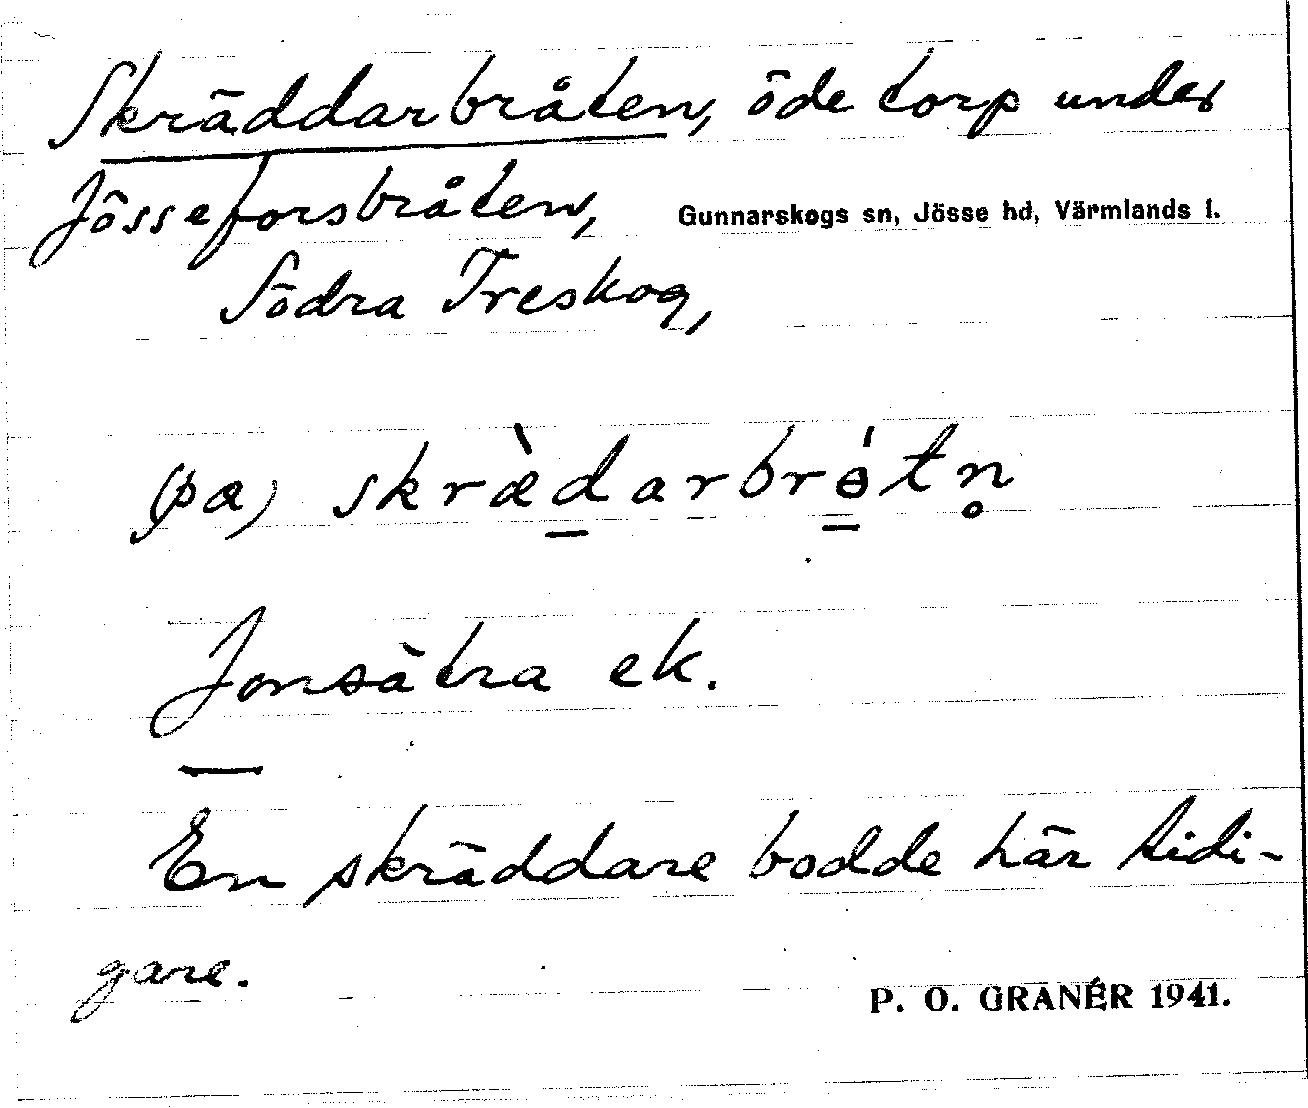 Skräddarbråten, öde torp under
Jösseforsbråten, Gunnarskogs sn, Jösse hd, Värmlands l.
Södra Treskog,
(pa) skræ̀darbrɵ́tn̥
Jonsätra ek.
En skräddare bodde här tidi-
gare.
P. O. GRANÉR 1941.